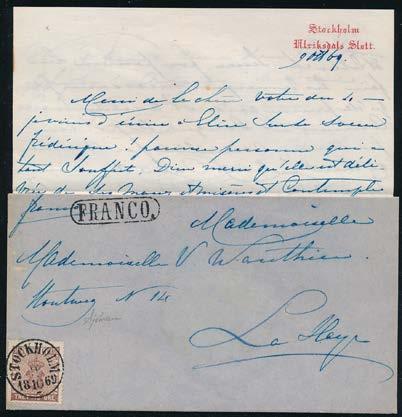 Stockholm
Ulriksdals Slott.
9 oct 69.
Merci de le cher votre du 4 -
d'écrire à Elise sur le
frédérique! pauvre personne qui a
tant souffert. Dieu merci qu'elle est déli-
de maux et contemple
FRANCO.
Mademoiselle
Mademoiselle V Wauthier
Houtweg N 14
La Haye
STOCKHOLM
18 10 69